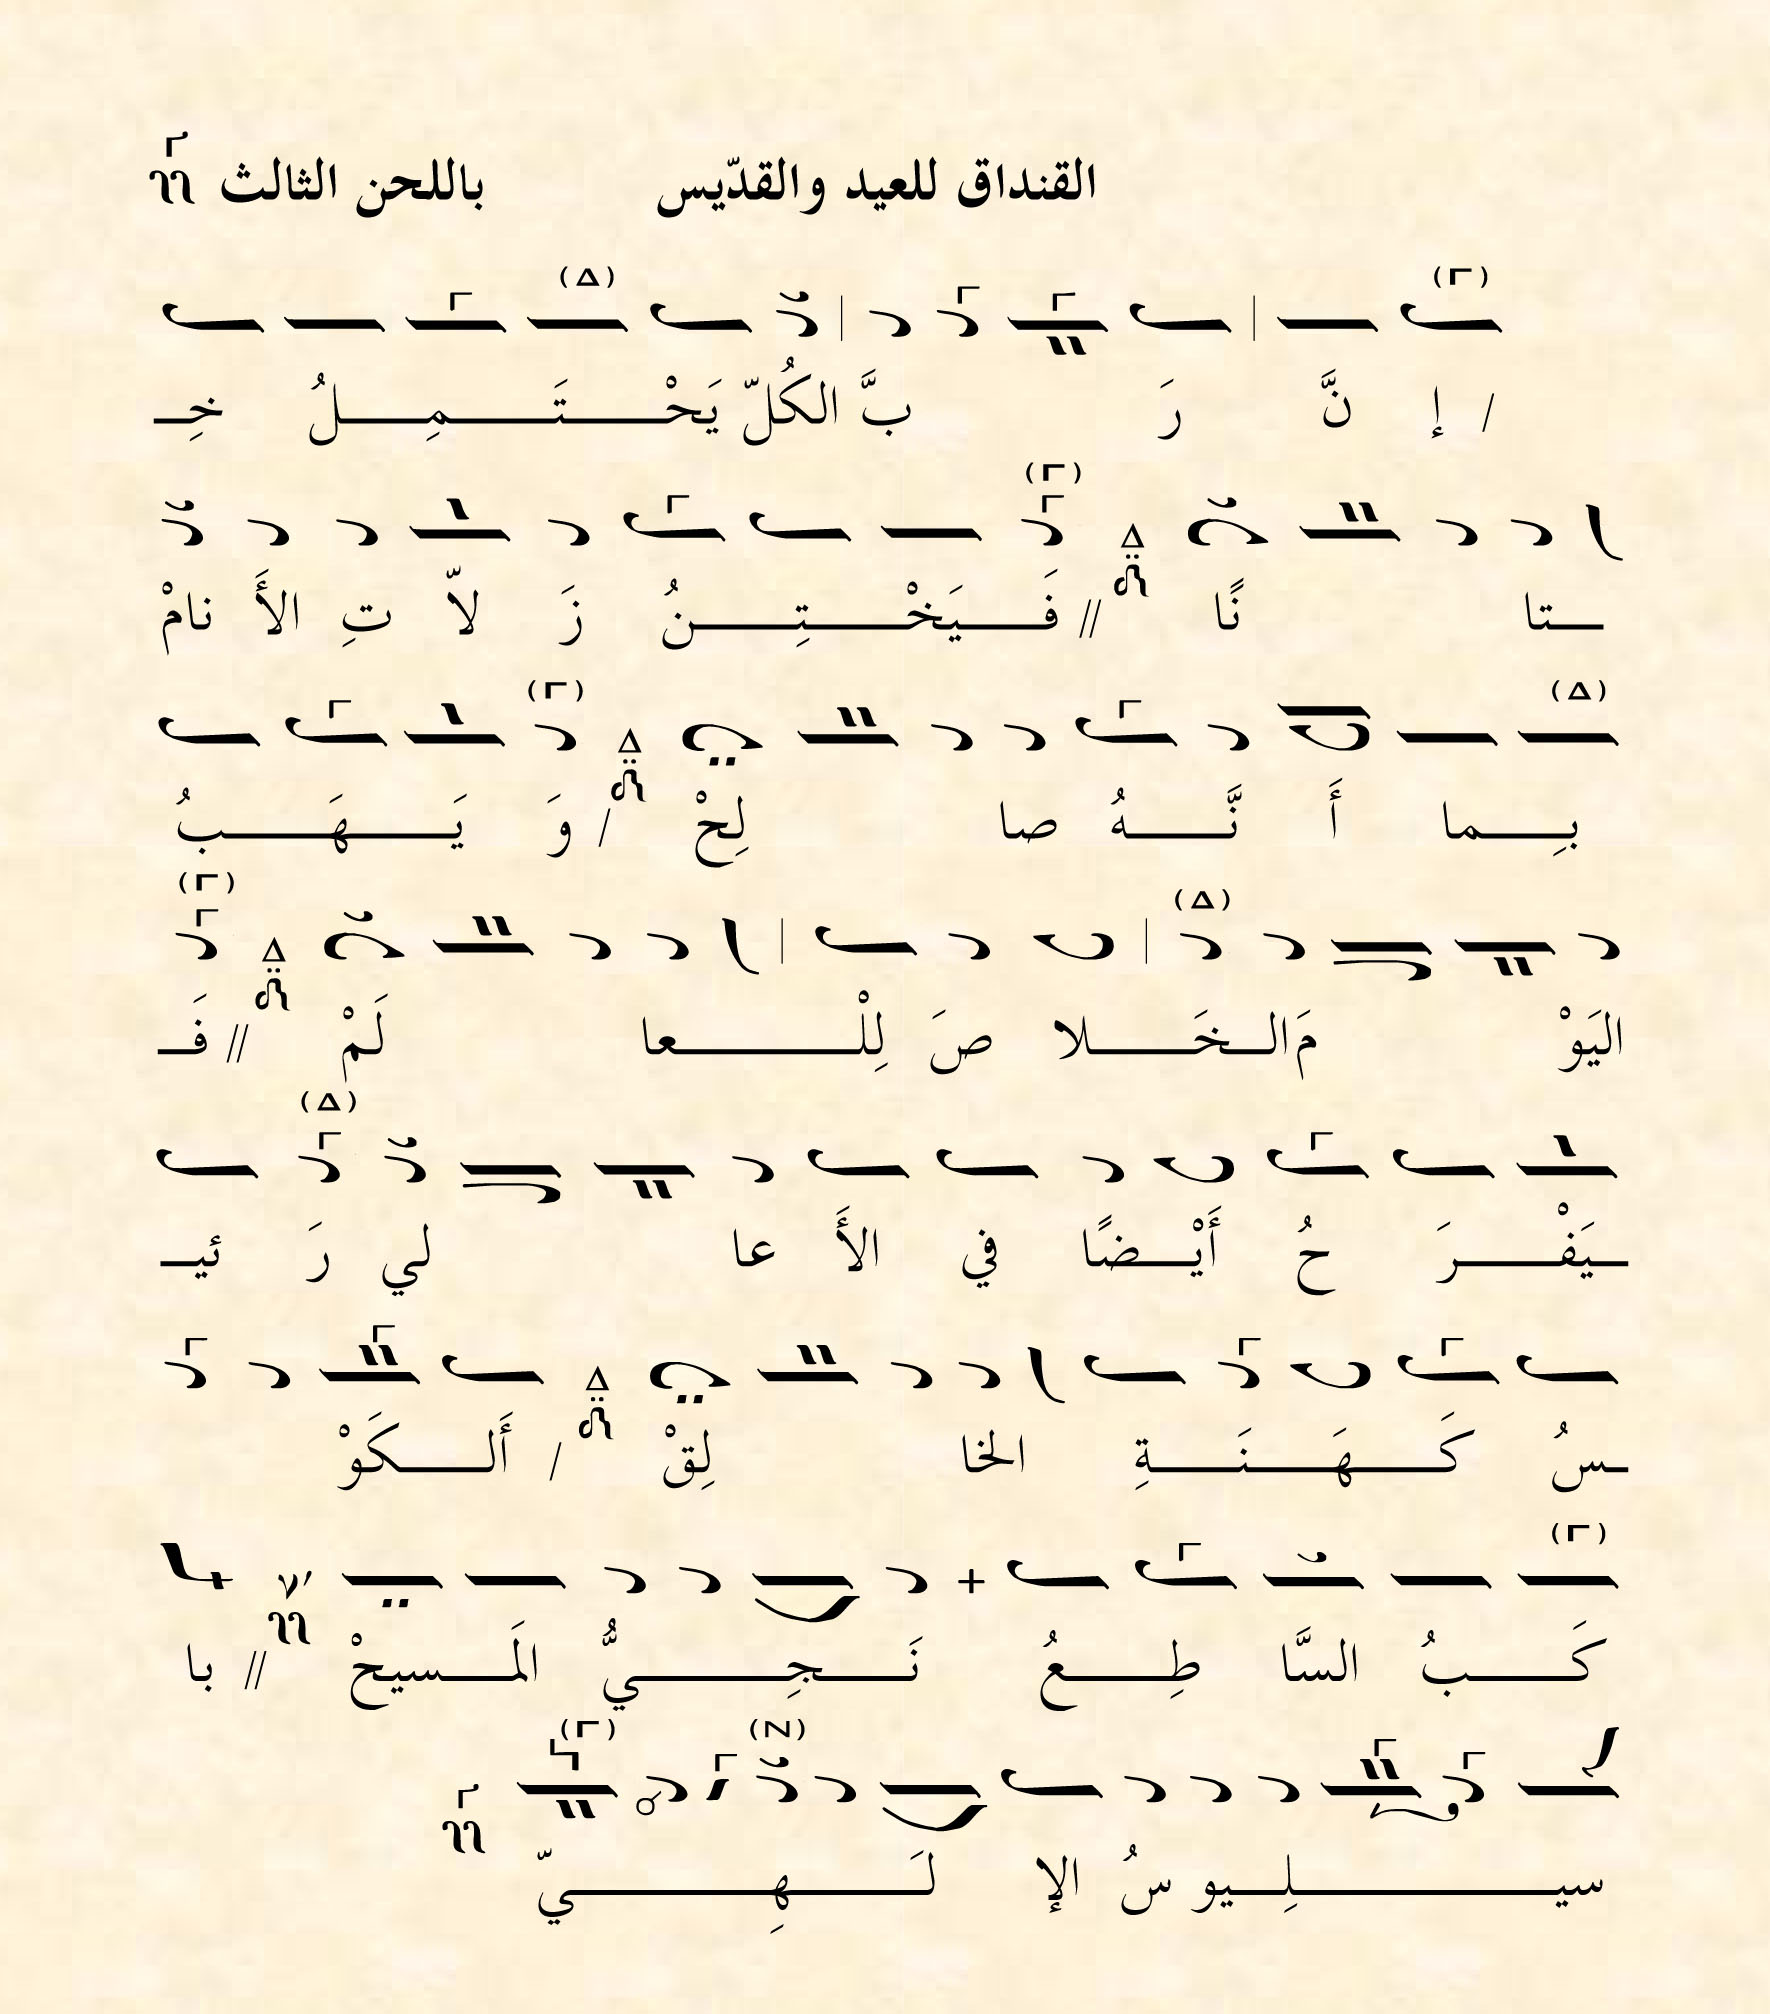 القنداق للعيد والقدّيس باللحن الثالث
/ إ نَّ رَ بَّ الكُلّ يَحْـــتَـــمِـــلُ خِـ
ـتا نًا // فَـــيَخْـــتِـــنُ زَ لاّ تِ الأَ نامْ
بِـــما أَ نَّـــهُ صا لِحْ / وَ يَـــهَـــبُ
اليَوْ مَ الـــخَـــلا صَ لِلْـــعا لَمْ // فَـ
ـيَفْـــرَ حُ أَيْـــضًا في الأَ عا لي رَ ئيـ
ـسُ كَـــهَـــنَـــةِ الخا لِقْ / أَلـــكَوْ
كَـــبُ السَّا طِـــعُ نَـــجِـــيُّ المَـــسيحْ // با
سيـــلِـــيو سُ الإ لَـــهِـــيّ